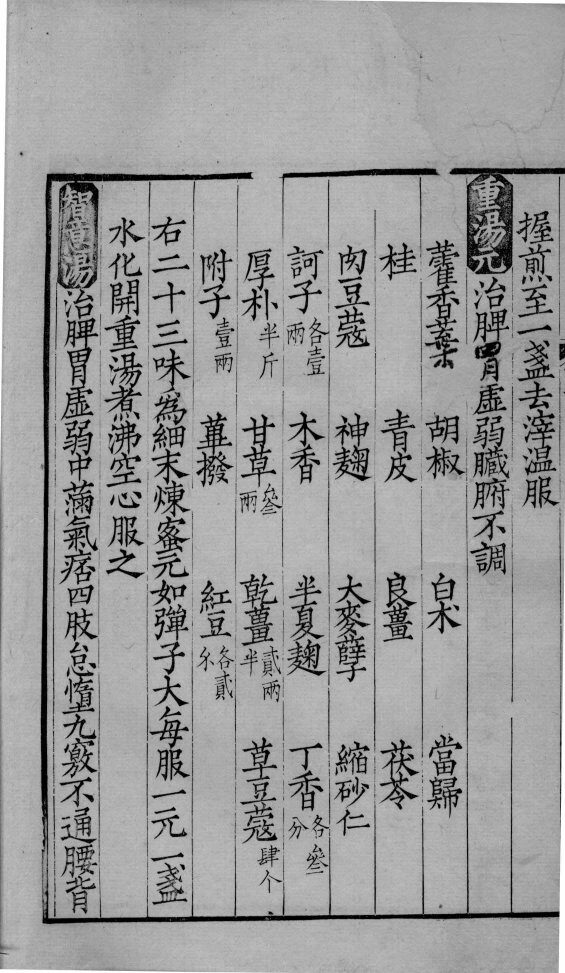 握煎至一盞去滓温服
重湯元治脾胃虛弱臟腑不調
藿香葉 胡椒 白朮 當歸
桂 青皮 良薑 茯苓
肉豆蔻 神麹 大麥櫱 縮砂仁
訶子各壹兩 木香 半夏麹 丁香各叄分
厚朴半斤 甘草叄兩 乾薑貳兩半 草豆蔻肆个
附子壹兩 蓽撥 紅豆各貳
右二十三味為細末煉蜜元如彈子大每服一元一盞
水化開重湯煮沸空心服之
智意湯治脾胃虛弱中滿氣痞四肢怠惰九竅不通腰背